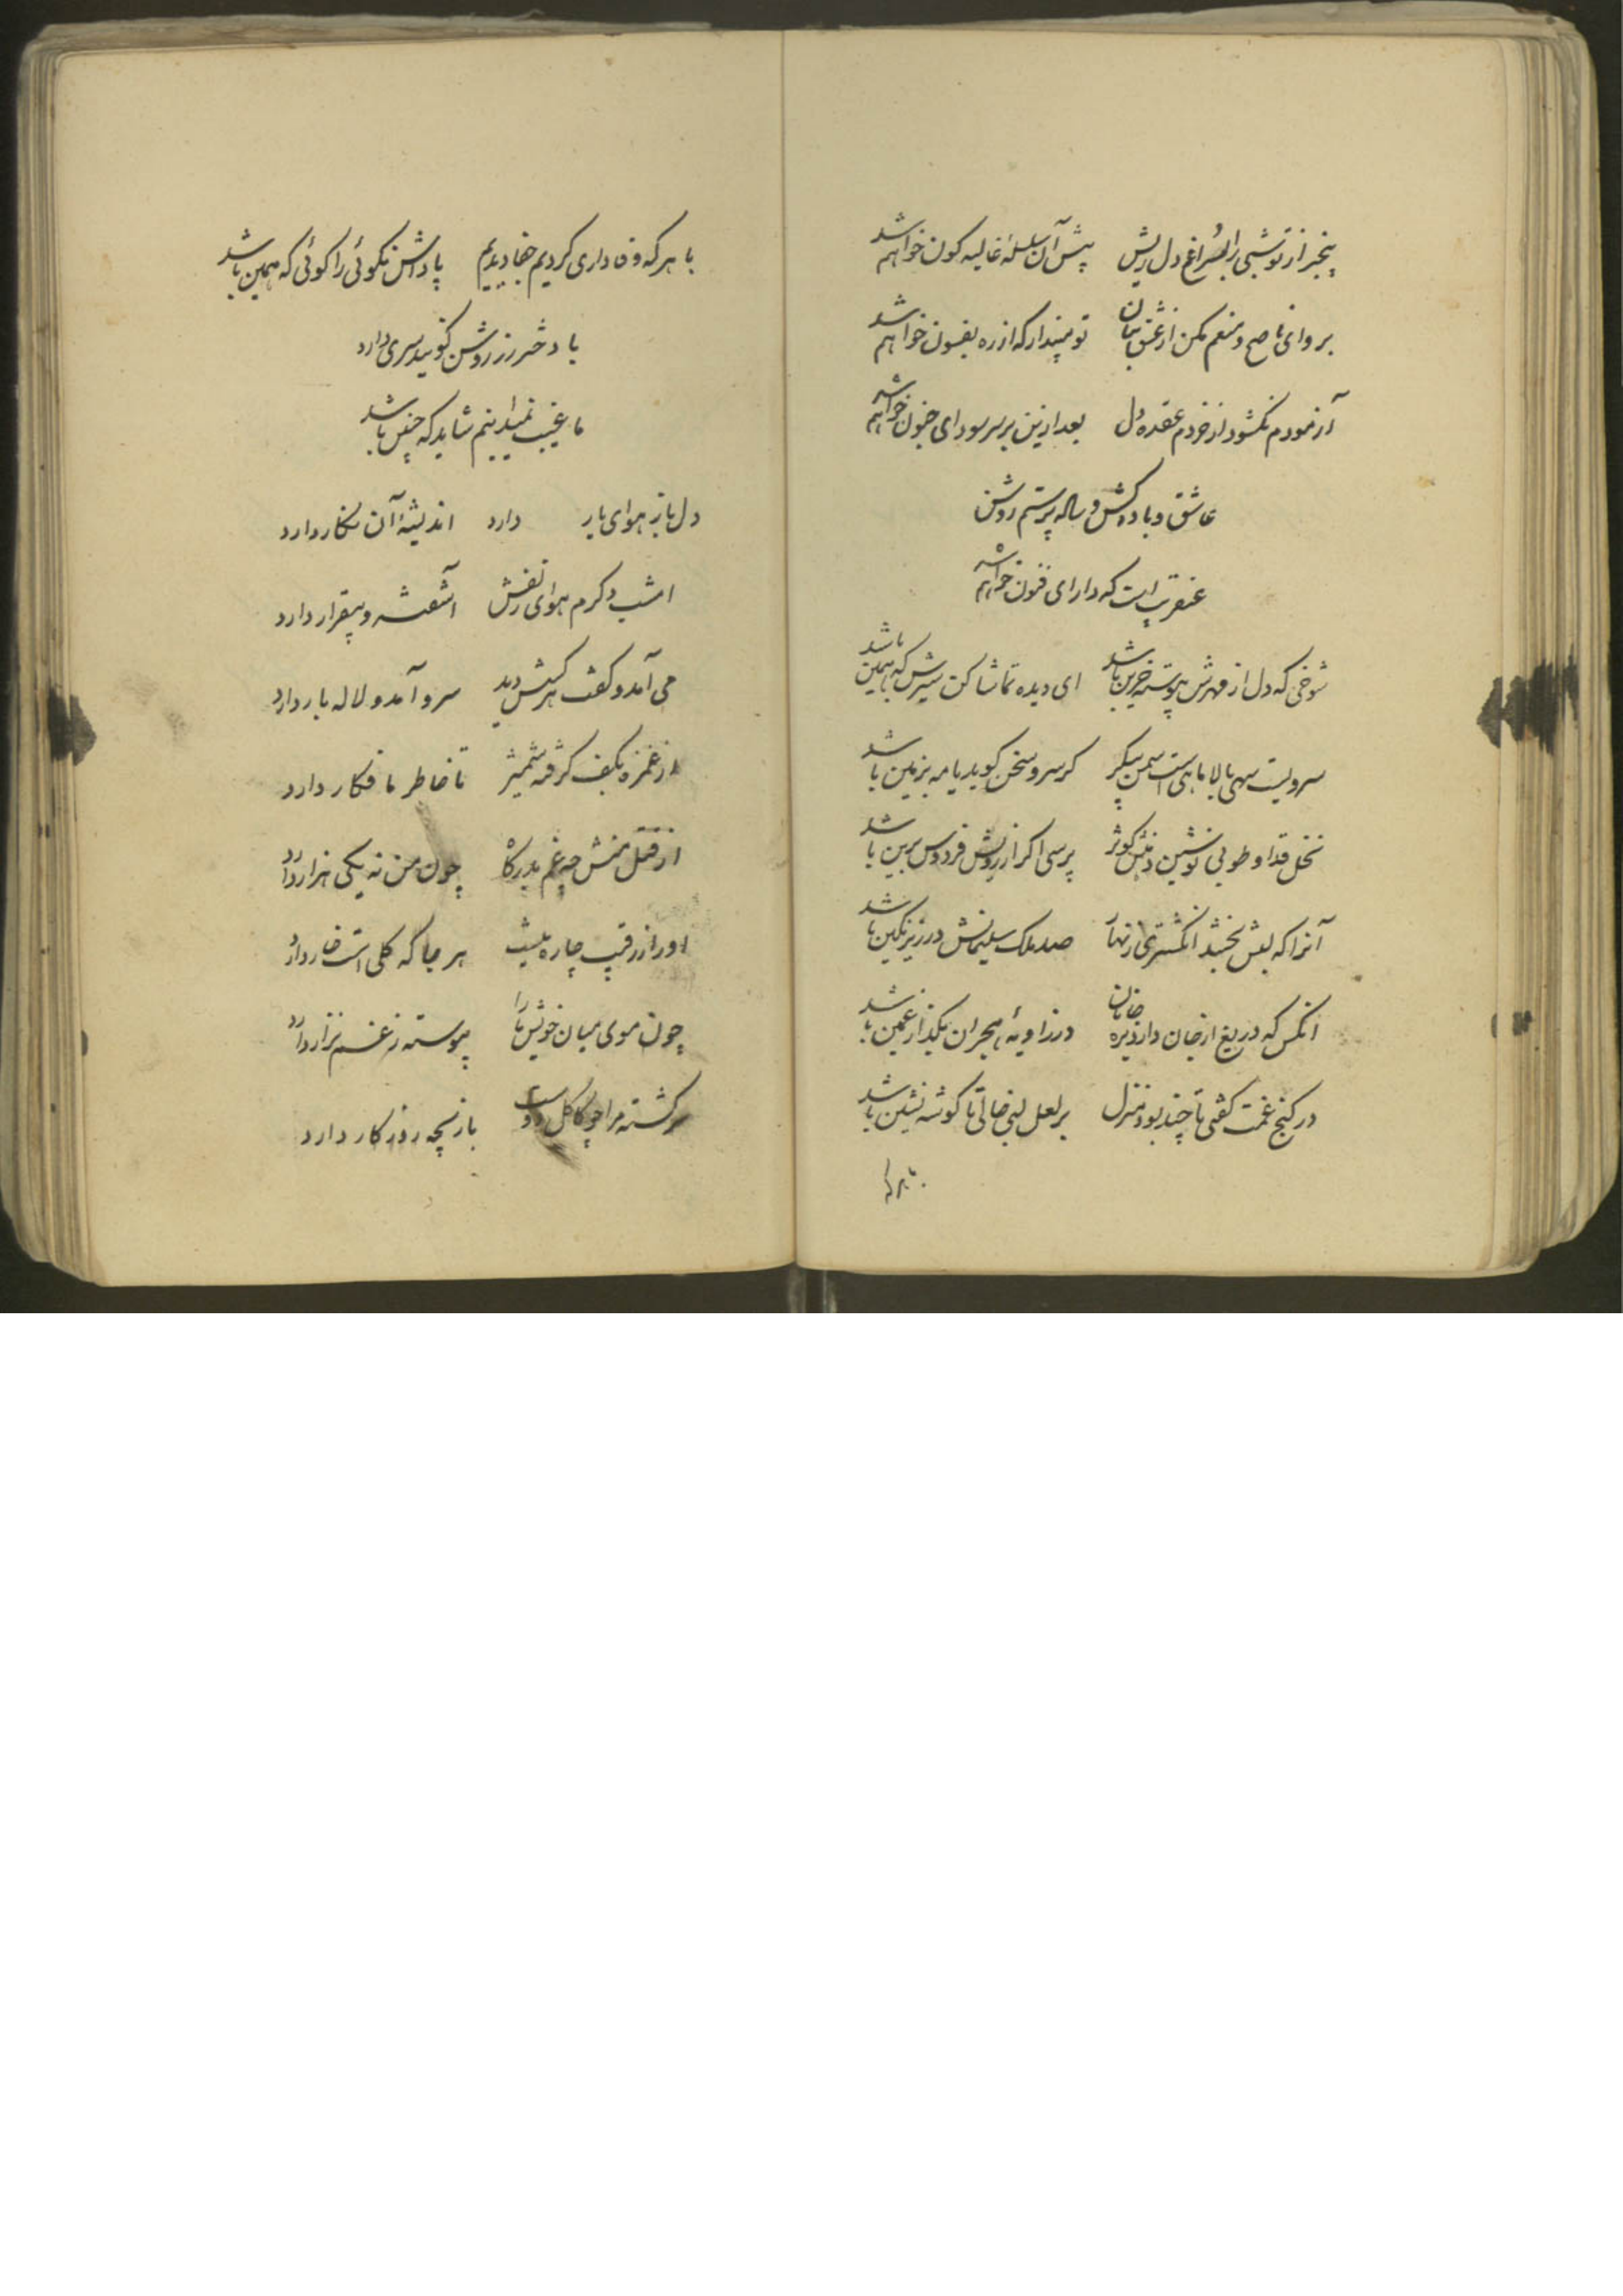 بیخبر از تو شبی را بسراغ دل ریش پیش آن سلسله غالیه کون خواهم شد
برو ای ناصح و منعم مکن از عشق بتان تو مپندار که از ره بفسون خواهم شد
آزمودم نکشود از خردم عقده دل بعد ازین بر سر سودای جنون خواهم شد
عاشق و باده کش و ساله پرستم روشن
عنقریب است که دارای فنون خواهم شد
شوخی که دل از قهرش پیوسته حزین باشد ای دیده تماشا کن سیرش که همین باشد
سرویست سهی بالا ماهیست سمن پیکر کر سرو سخن کوید یا مه بزمین باشد
نخل قد او طوبی نوشین دهنش کوثر پرسی اکر از رویش فردوس برین باشد
آنرا که لبش بخشد انکشتری زنهار صد ملک سلیمانش در زیر نکین باشد
انکس که دریغ از جان دارد بره جانان در زاویهٔ هجران بکذار غمین باشد
در کنج غمت کفتی تا چند بود منزل بر لعل لبی خالی تا کوشه نشین باشد
با هر که
با هر که وفاداری کردیم جفا دیدیم پاداش نکوئی را کوئی که همین باشد
با دختر رز روشن کویند سری دارد
ما غیب نمیدانیم شاید که چنین باشد
دل باز هوای یار دارد اندیشهٔ آن نکار دارد
امشب دکرم هوای زلفش آشفته و بیقرار دارد
می آمد و کفت هر کسش دید سرو آمد و لاله بار دارد
از غمزه بکف کرفته شمشیر تا خاطر ما فکار دارد
از قتل منش چه غم بدرکاه چون من نه یکی هزار دارد
او را ز رقیب چاره نیست هر جا که کلی است خار دارد
چون موی میان خویش ما را پیوسته ز غم نزار دارد
سرکشته مرا چو کاکل دوست بازیچه روزکار دارد